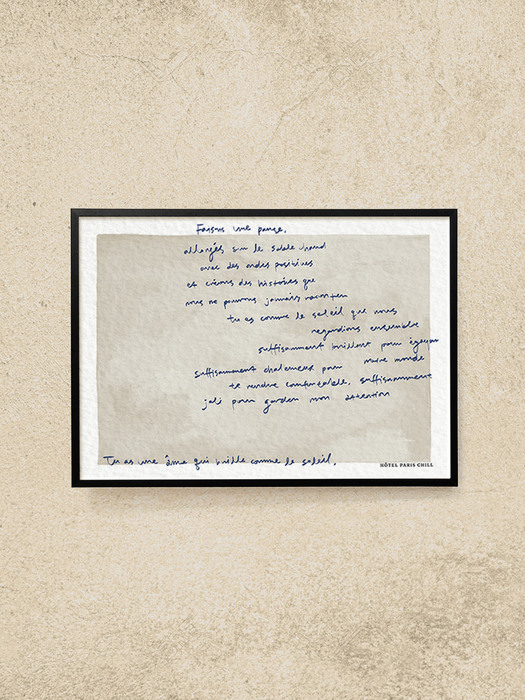 Faisons une pause,
allongés sur le sable chaud
avec des ondes positives
et créons des histoires que
nous ne pouvons jamais raconter
tu es comme le soleil que nous
regardions ensemble
suffisamment brillant pour égayer
suffisamment chaleureux pour notre monde
te rendre comfortable, suffisamment
joli pour garder mon attention
Tu as une âme qui brille comme le soleil.
HÔTEL PARIS CHILL